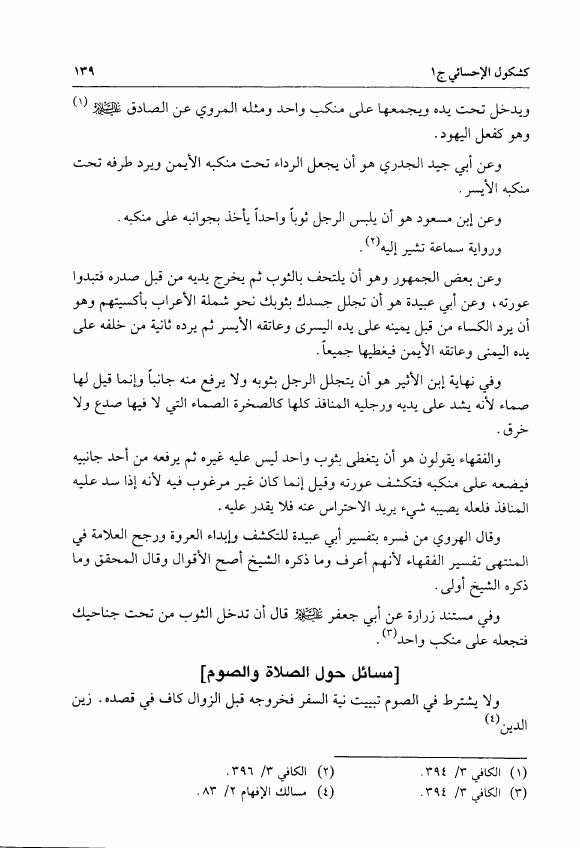 كشكول الإحسائي ج١ ١٣٩
ويدخل تحت يده ويجمعها على منكب واحد ومثله المروي عن الصادق عليه السلام (١)
وهو كفعل اليهود.
وعن أبي جيد الجدري هو أن يجعل الرداء تحت منكبه الأيمن ويرد طرفه تحت
منكبه الأيسر.
وعن إبن مسعود هو أن يلبس الرجل ثوباً واحداً يأخذ بجوانبه على منكبه.
ورواية سماعة تشير إليه(٢).
وعن بعض الجمهور وهو أن يلتحف بالثوب ثم يخرج يديه من قبل صدره فتبدوا
عورته، وعن أبي عبيدة هو أن تجلل جسدك بثوبك نحو شملة الأعراب بأكسيتهم وهو
أن يرد الكساء من قبل يمينه على يده اليسرى وعاتقه الأيسر ثم يرده ثانية من خلفه على
يده اليمنى وعاتقه الأيمن فيغطيها جميعاً.
وفي نهاية إبن الأثير هو أن يتجلل الرجل بثوبه ولا يرفع منه جانباً وإنما قيل لها
صماء لأنه يشد على يديه ورجليه المنافذ كلها كالصخرة الصماء التي لا فيها صدع ولا
خرق.
والفقهاء يقولون هو أن يتغطى بثوب واحد ليس عليه غيره ثم يرفعه من أحد جانبيه
فيضعه على منكبه فتكشف عورته وقيل إنما كان غير مرغوب فيه لأنه إذا سد عليه
المنافذ فلعله يصيبه شيء يريد الاحتراس عنه فلا يقدر عليه.
وقال الهروي من فسره بتفسير أبي عبيدة للتكشف وإبداء العروة ورجح العلامة في
المنتهى تفسير الفقهاء لأنهم أعرف وما ذكره الشيخ أصح الأقوال وقال المحقق وما
ذكره الشيخ أولى.
وفي مستند زرارة عن أبي جعفر عليه السلام قال أن تدخل الثوب من تحت جناحيك
فتجعله على منكب واحد(٣).
[مسائل حول الصلاة والصوم]
ولا يشترط في الصوم تبييت نية السفر فخروجه قبل الزوال كاف في قصده. زين
الدين(٤)
(١) الكافي ٣/ ٣٩٤. (٢) الكافي ٣/ ٣٩٦.
(٣) الكافي ٣/ ٣٩٤. (٤) مسالك الإفهام ٢/ ٨٣.